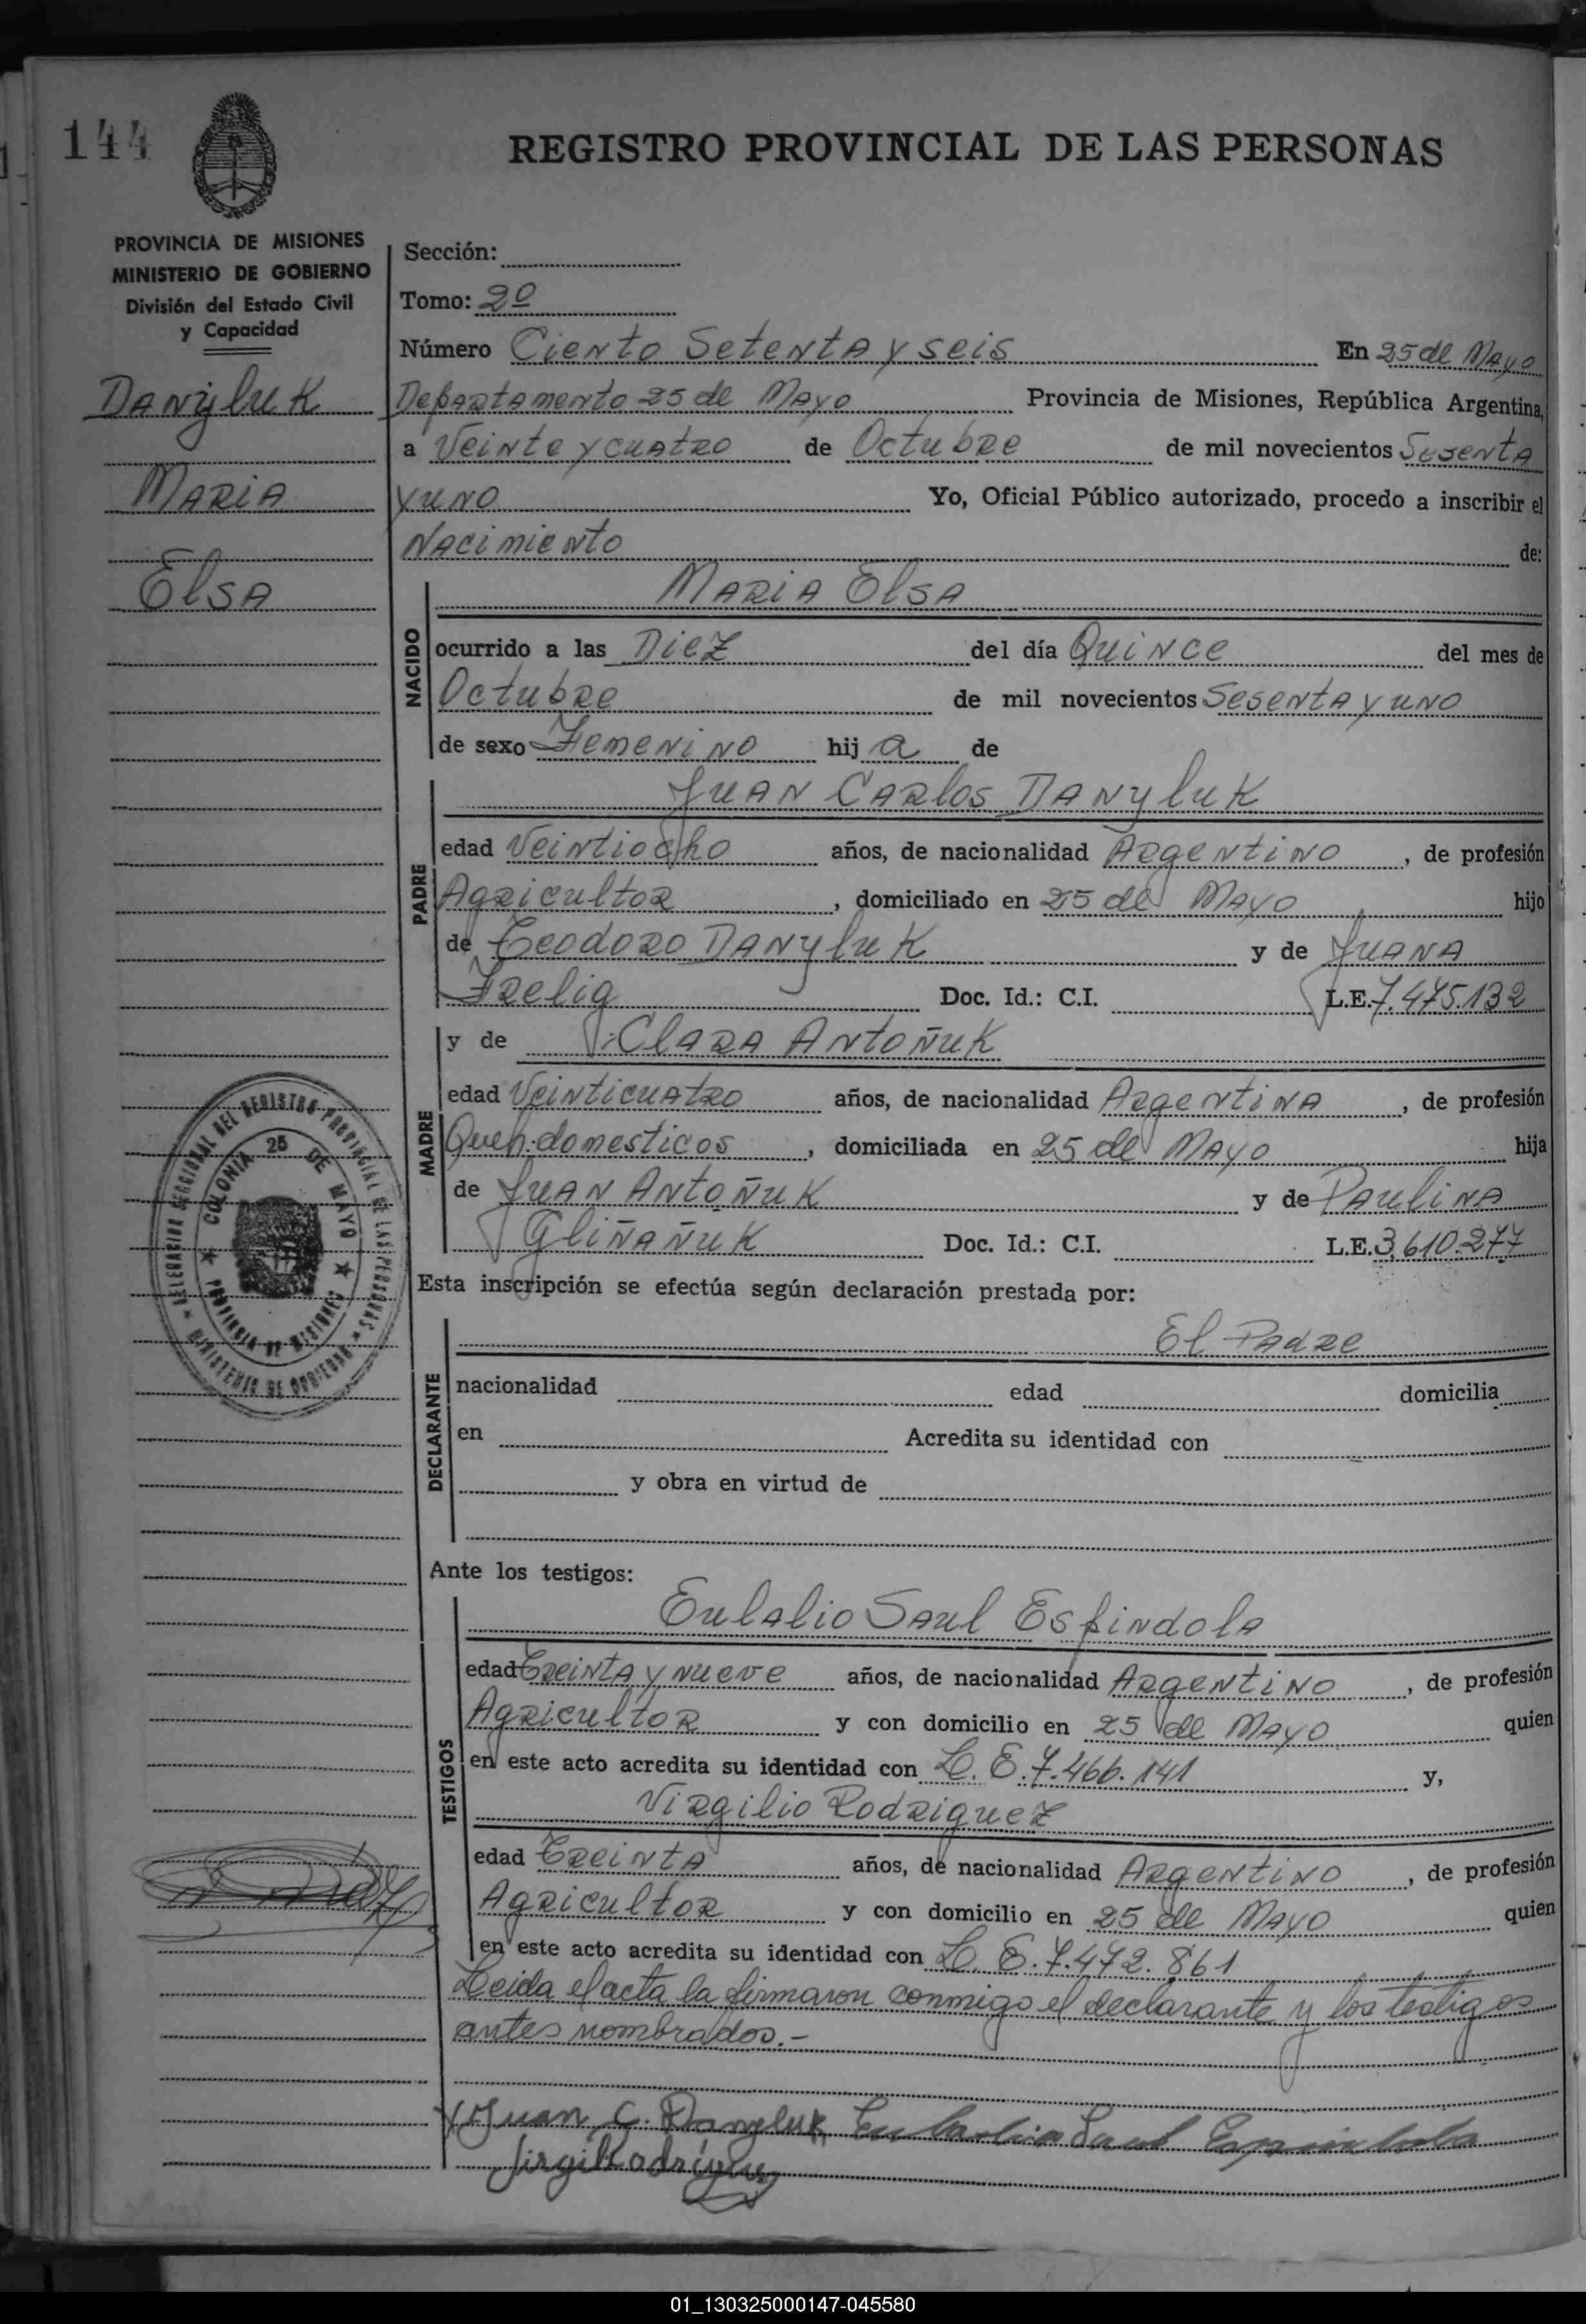 144
REGISTRO PROVINCIAL DE LAS PERSONAS
PROVINCIA DE MISIONES
MINISTERIO DE GOBIERNO
División del Estado Civil
y Capacidad
Danyluk
Maria
Elsa
Sección:
Tomo: 2º
Número Ciento Setenta y seis En 25 de Mayo
Departamento 25 de Mayo Provincia de Misiones, República Argentina,
a Veinte y cuatro de Octubre de mil novecientos Sesenta
y uno Yo, Oficial Público autorizado, procedo a inscribir el
Nacimiento de:
NACIDO
Maria Elsa
ocurrido a las Diez del día Quince del mes de
Octubre de mil novecientos Sesenta y uno
de sexo Femenino hij a de
PADRE
Juan Carlos Danyluk
edad Veintiocho años, de nacionalidad Argentino, de profesión
Agricultor, domiciliado en 25 de Mayo hijo
de Teodoro Danyluk y de Juana
Frelig Doc. Id.: C.I. L.E. 7.475.132
MADRE
y de Clara Antoñuk
edad Veinticuatro años, de nacionalidad Argentina, de profesión
Queh. domesticos, domiciliada en 25 de Mayo hija
de Juan Antoñuk y de Paulina
Gliñañuk Doc. Id.: C.I. L.E. 3.610.277
Esta inscripción se efectúa según declaración prestada por:
DECLARANTE
El Padre
nacionalidad edad domicilia
en Acredita su identidad con
y obra en virtud de
Ante los testigos:
TESTIGOS
Eulalio Saul Espindola
edad Treinta y nueve años, de nacionalidad Argentino, de profesión
Agricultor y con domicilio en 25 de Mayo quien
en este acto acredita su identidad con L. E. 7.466.141 y,
Virgilio Rodriguez
edad Treinta años, de nacionalidad Argentino, de profesión
Agricultor y con domicilio en 25 de Mayo quien
en este acto acredita su identidad con L. E. 7.472.861
Leida el acta la firmaron conmigo el declarante y los testigos
antes nombrados.-
Juan C. Danyluk Eulalio Saul Espindola
COLONIA 25 DE MAYO
PROVINCIA DE MISIONES
DELEGACION SECCIONAL DEL REGISTRO PROVINCIAL DE LAS PERSONAS
MINISTERIO DE GOBIERNO
01_130325000147-045580